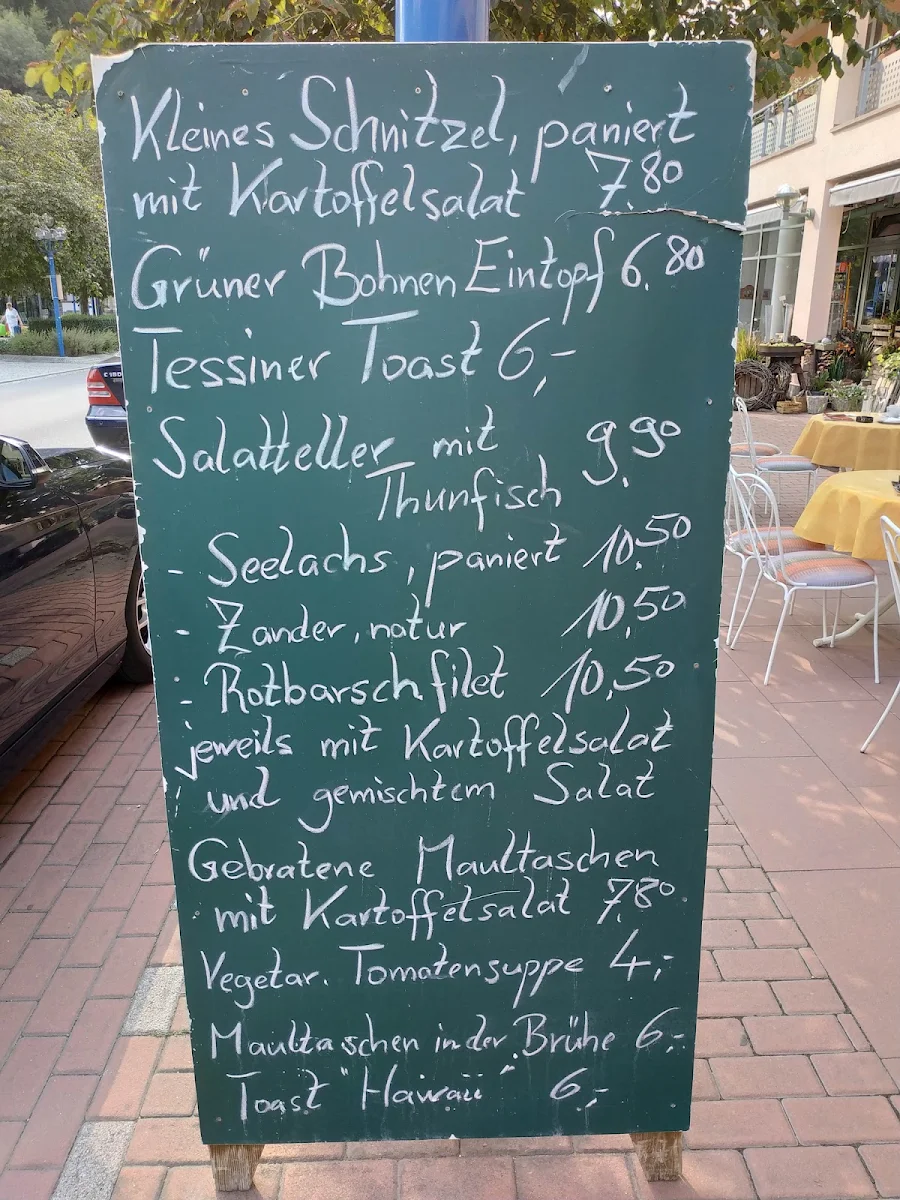 Kleines Schnitzel, paniert
mit Kartoffelsalat 7.80
Grüner Bohnen Eintopf 6.80
Tessiner Toast 6,-
Salatteller mit 9.90
Thunfisch
- Seelachs, paniert 10.50
- Zander, natur 10,50
- Rotbarschfilet 10,50
jeweils mit Kartoffelsalat
und gemischtem Salat
Gebratene Maultaschen
mit Kartoffelsalat 7.80
Vegetar. Tomatensuppe 4,-
Maultaschen in der Brühe 6,-
Toast "Hawaii" 6,-